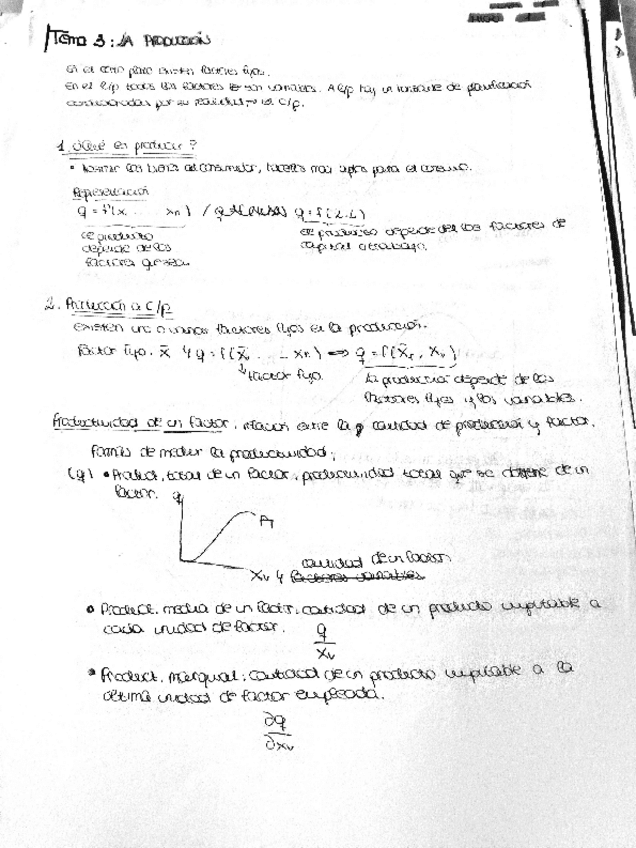 Tema 3: LA PRODUCCIÓN
En el corto plazo existen factores fijos.
En el l/p todos los factores son variables. A l/p hay un horizonte de planificación
por su c/p.
1. ¿Qué es producir?
• los bienes al consumidor, hacerlos más aptos para el consumo.
Representación
q = f(x ... xn) / q = f(K, L)
depende de los factores de
depende de los
capital o trabajo.
factores que sea.
2. Producción a c/p
existen uno o varios factores fijos en la producción.
factor fijo. x̄ → q = f(x̄, ... xn) ⟹ q = f(x̄f, xv)
factor fijo.
La producción depende de los
factores fijos y los variables.
Productividad de un factor, relación entre la cantidad de producción y factor.
formas de medir la productividad:
(q) • Product. total de un factor: productividad total que se obtiene de un
factor.
q
PT
cantidad de un factor
xv
factores variables
• Product. media de un factor: cantidad de un producto imputable a
cada unidad de factor.
q
xv
• Product. marginal: cantidad de un producto imputable a la
última unidad de factor empleada.
∂q
∂xv